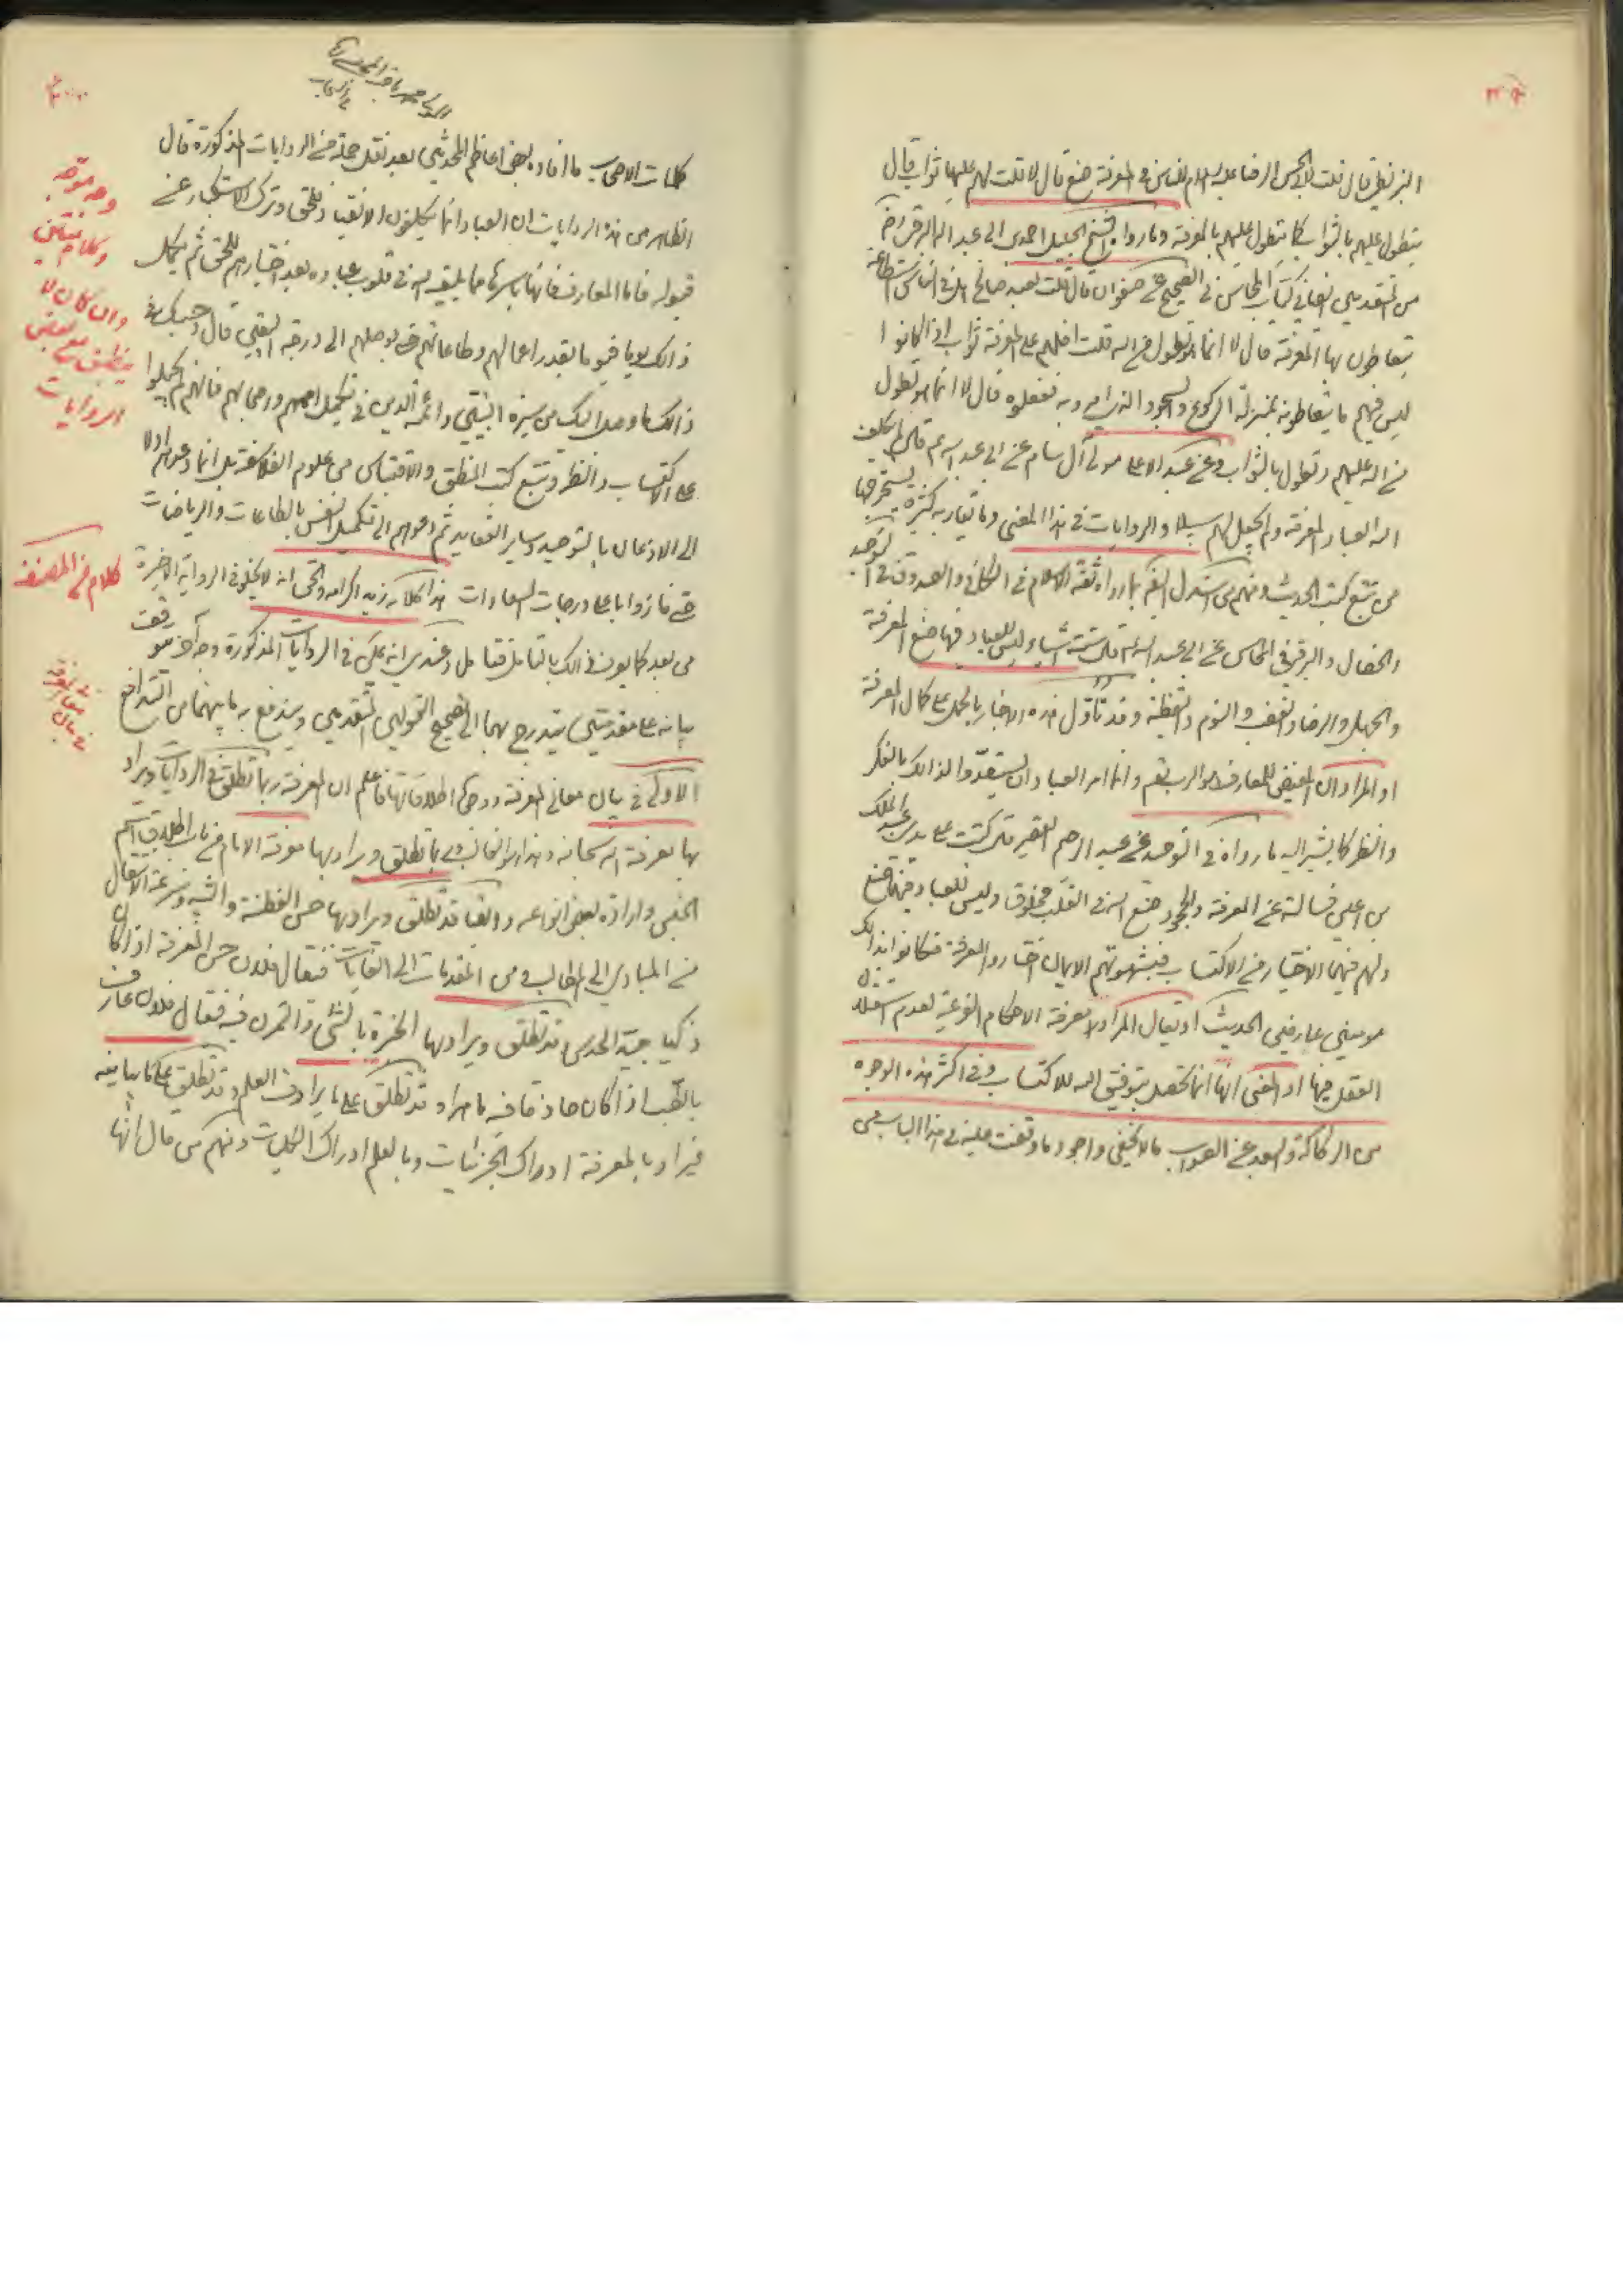 البزنطي قال قلت لأبي الحسن الرضا عليه السلام للناس في المعرفة صنع قال لا قلت لهم عليها ثواب قال
يتطول عليهم بالثواب كما يتطول عليهم بالمعرفة وما رواه الشيخ الجليل احمد بن ابي عبد الله البرقي
من المتقدمين في كتاب المحاسن في الصحيح عن صفوان قال قلت لعبد صالح هل في الناس استطاعة
يتعاطون بها المعرفة قال لا انما هو تطول من الله قلت افلهم على المعرفة ثواب اذا كانوا
ليس فيهم ما يتعاطونه بمنزلة الركوع والسجود الذي امروا به ففعلوه قال لا انما هو تطول
من الله عليهم وتطول بالثواب وعن عبد الاعلى مولى آل سام عن ابي عبد الله ع قال لم يكلف
الله العباد المعرفة ولم يجعل لهم سبيلا والروايات في هذا المعنى وما يقاربه كثيرة يستخرجها
من تتبع كتب الحديث ومنهم من استدل بما رواه ثقة الاسلام في الكافي والصدوق في التوحيد
والخصال والبرقي في المحاسن عن ابي عبد الله ع قال ستة اشياء ليس للعباد فيها صنع المعرفة
والجهل والرضا والغضب والنوم واليقظة وقد تأول هذه الاخبار بالحمل على كمال المعرفة
او المراد ان المفيض للمعارف هو الرب تعم وانما امر العباد ان يستعدوا لذالك بالفكر
والنظر كما يشير اليه ما رواه في التوحيد عن عبد الرحيم القصير قال كتبت على يدي عبد الملك
بن اعين فسالته عن المعرفة والجحود صنع الله في القلب مخلوق وليس للعباد فيهما صنع
ولهم فيهما الاختيار من الاكتساب فبشهوتهم الايمان اختاروا المعرفة فكانوا بذالك
مومنين عارفين الحديث او يقال المراد لا معرفة الاحكام الفرعية لعدم استقلال
العقل فيها او المعنى انها انما تحصل بتوفيق الله للاكتساب وفي اكثر هذه الوجوه
من الركاكة والبعد عن الصواب ما لا يخفى واجود ما وقفت عليه في هذا الباب من
كلمات الاصحاب ما افاده بعض اعاظم المحدثين بعد نقل جملة من الروايات المذكورة قال
الظاهر من هذه الروايات ان العباد انما يكلفون الانقياد للحق وترك الاستكبار عن
قبوله فاما المعارف فانها باسرها مما يلقيه الله في قلوب عباده بعد اختيارهم للحق ثم يكمل
ذالك يوما فيوما بقدر اعمالهم وطاعاتهم حتى يوصلهم الى درجة اليقين قال وحسبك في
ذالك ما وصل اليك من سيرة النبيين وائمة الدين في تكميل اممهم واصحابهم فانهم لم يحيلوا
على الاكتساب والنظر وتتبع كتب المنطق والاقتباس من علوم الفلاسفة بل انما دعوهم اولا
الى الاذعان بالتوحيد وساير العقايد ثم دعوهم الى تكميل النفس بالطاعات والرياضات
حتى فازوا باعلى درجات السعادات هذا كلامه زيد اكرامه والحق انه لا يخلو في الرواية الاخيرة
من بعد كما يعرف ذالك بالتامل فتامل وعندي انه يمكن في الروايات المذكورة وجه آخر موقف
بيانه على مقدمتين يتدرج بهما الى تصحيح القولين المتقدمين ويندفع به ما بينهما من التدافع
الاولى في بيان معاني المعرفة ووجوه اطلاقاتها فاعلم ان المعرفة ربما تطلق في الروايات ويراد
بها معرفة الله سبحانه وهذا هو الغالب وربما تطلق ويراد بها معرفة الامام من باب اطلاق اسم
الجنس وارادة بعض انواعه وايضا قد تطلق ويراد بها حسن الفطنة وسرعة الانتقال
من المبادي الى المطالب ومن المقدمات الى الغايات فيقال فلان حسن المعرفة اذا كان
ذكيا جيد الحدس وقد تطلق ويراد بها الخبرة بالشئ والتمرن فيه فيقال فلان عارف
بالطب اذا كان حاذقا فيه ماهرا وقد تطلق على ما يرادف العلم وقد تطلق على ما يباينه
فيراد بالمعرفة ادراك الجزئيات وبالعلم ادراك الكليات ومنهم من قال انها
وجه موجه
وكلام متين
وان كان لا
ينطبق مع بعض
الروايات
كلام من المصنف
في بيان